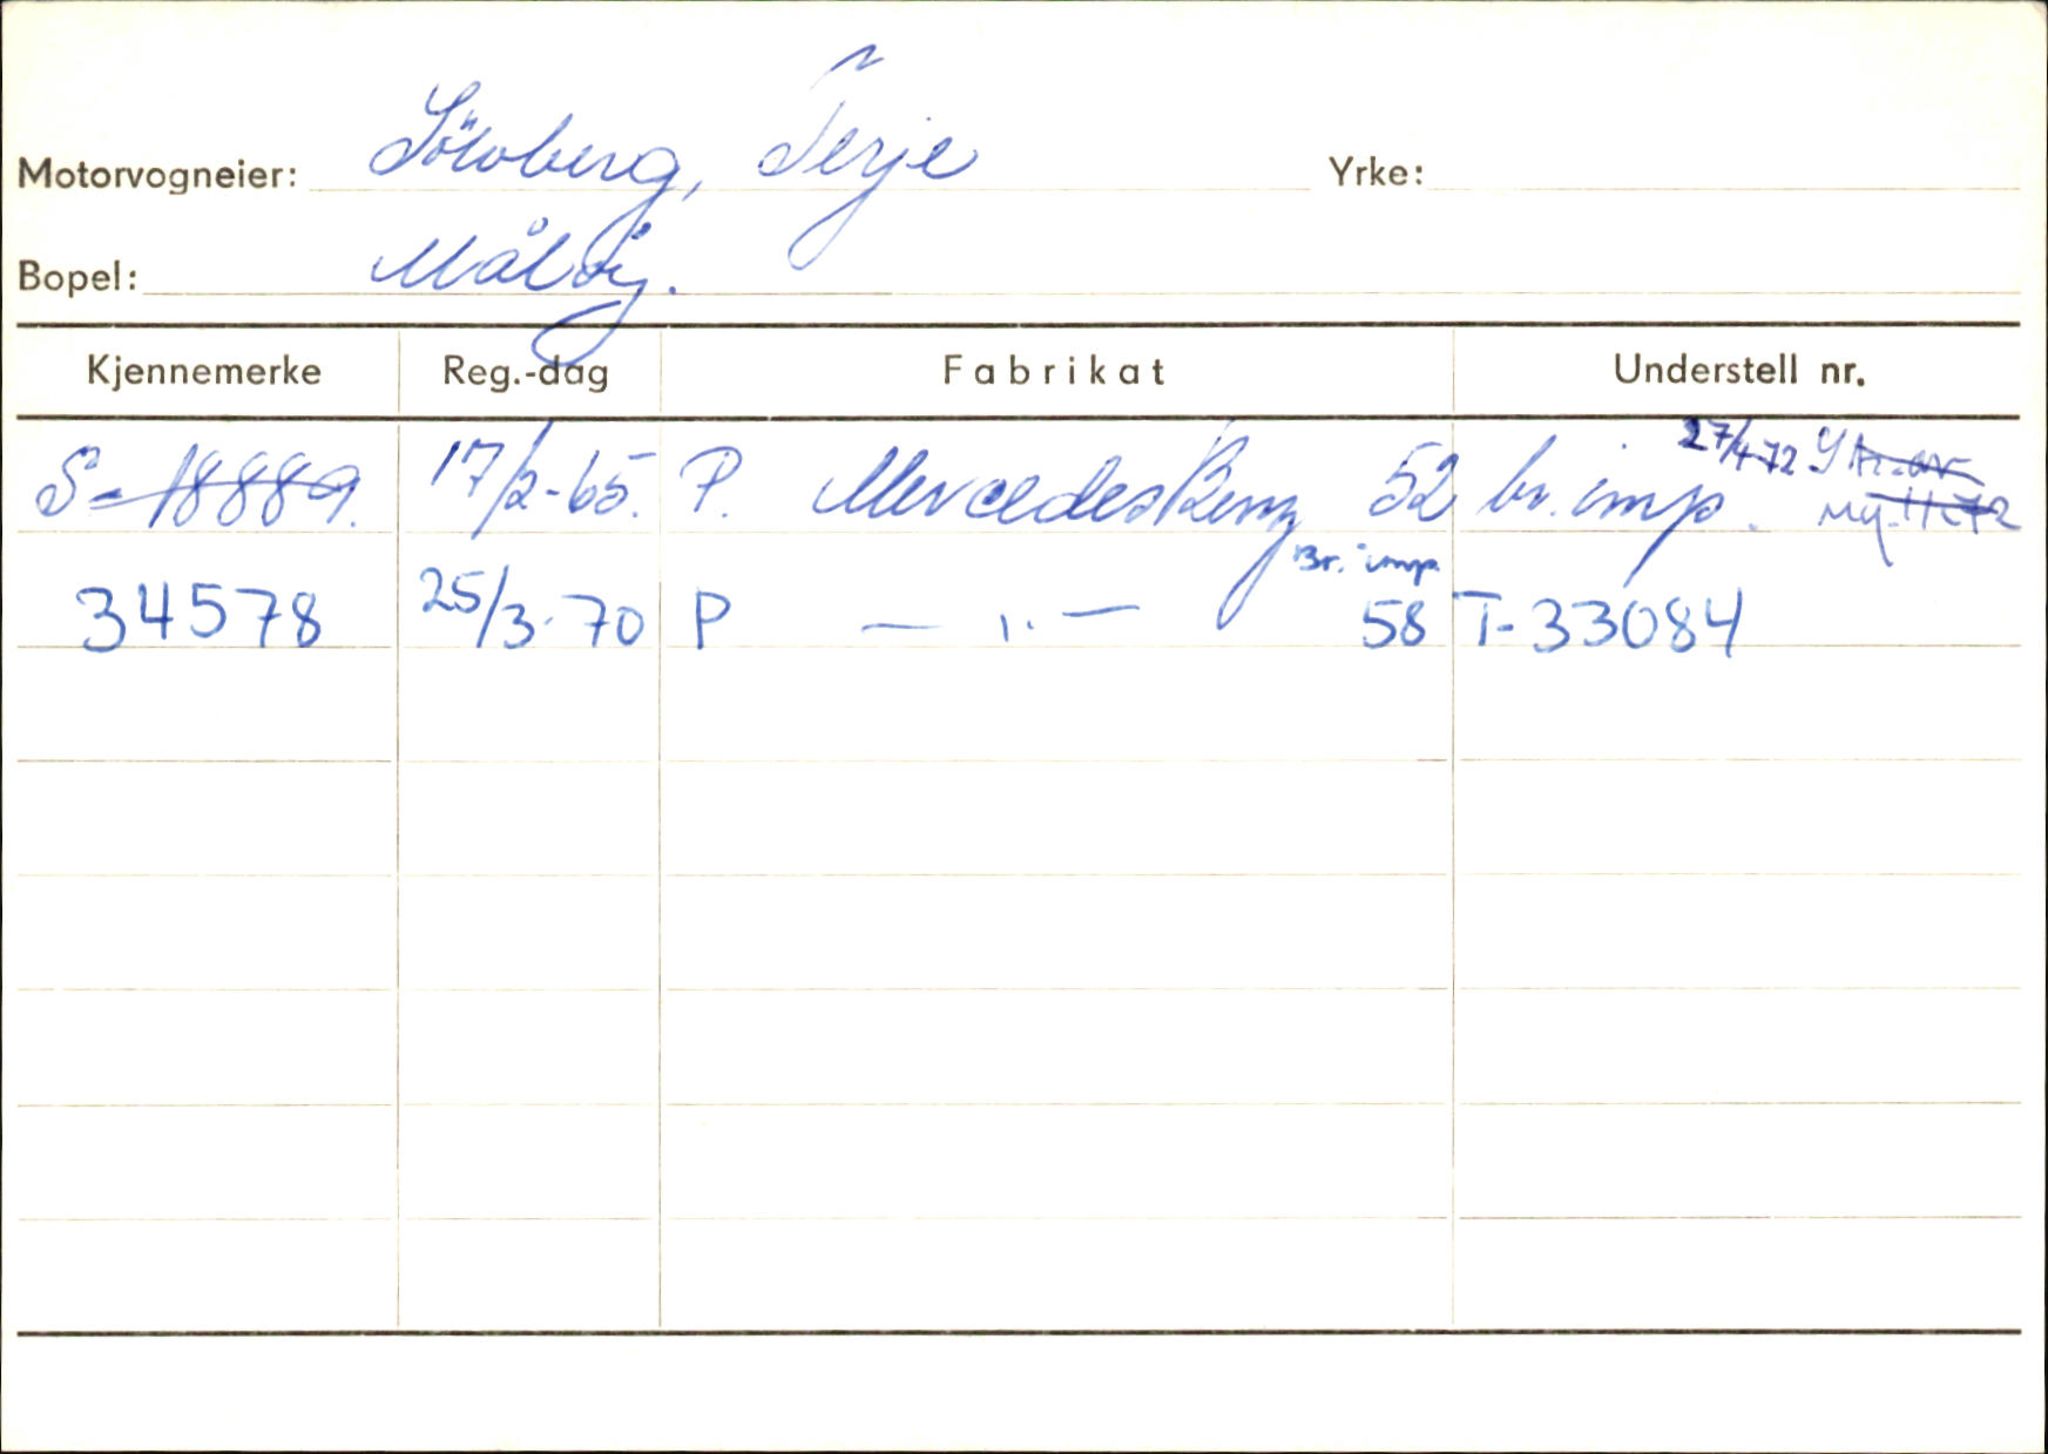 Motorvogneier: Sölvberg, Terje Yrke:
Bopel: Måløy.
Kjennemerke Reg.-dag Fabrikat Understell nr.
S-18889. 17/2-65. P. Mercedes Benz 52 br. imp. 27/4-72
34578 25/3-70 P — " — Br. imp. 58 T-33084